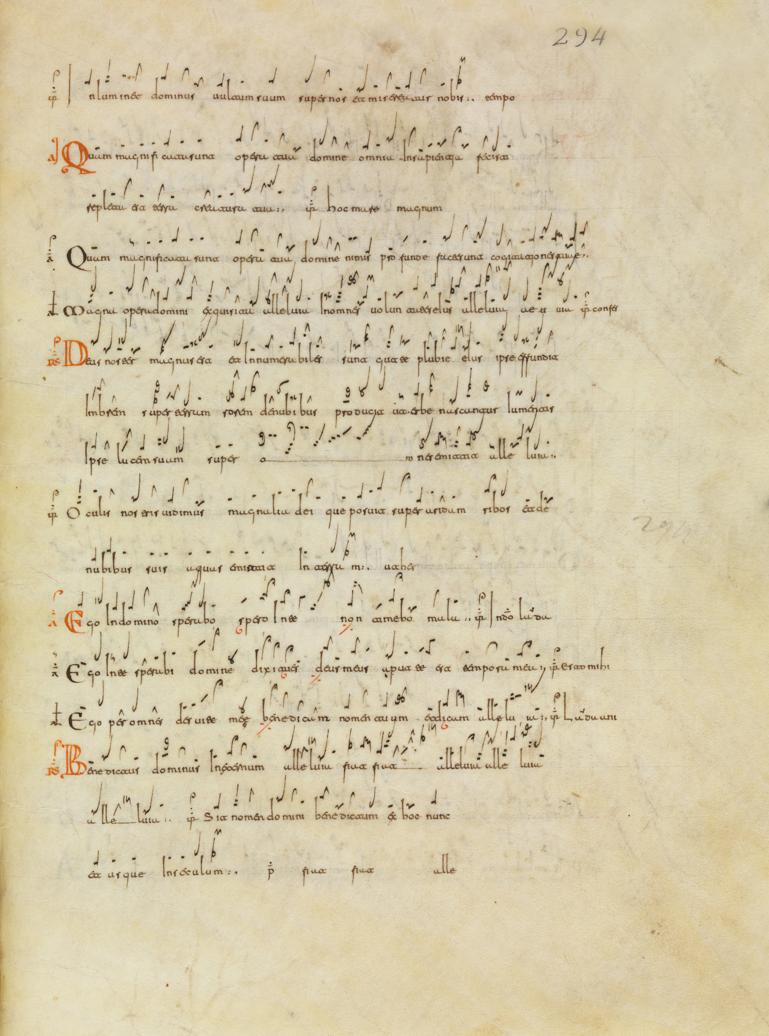 294
Inluminet dominus vultum suum super nos et misereatur nobis tempo
Quam magnificata sunt opera tua domine omnia In sapientia fecisti
repleta est terra creatura tua hoc mare magnum
Quam magnificata sunt opera tua domine nimis profunde facte sunt cogitationes tue
Magna opera domini exquisita alleluia In omnes volun tates eius alleluia confes
Deus noster magnus est et Innumerabiles sunt quoque plubie eius ipse effundit
Imbrem super terram rorem de nubibus producit
Ipse lucem suam super omnes emittit alle luia
Oculis nostris vidimus magnalia dei que posuit super aridam ex de
nubibus suis aquas emittit In terram
Ego In domino sperabo spero In te non timebo mala
Ego In te speravi domine dixi quia deus meus apud te est tempora mea
Ego per omnes dies vite mee benedicam nomen tuum et dicam alleluia
Benedictus dominus In eternum alleluia fiat fiat alleluia alle luia
alle luia Sit nomen domini benedictum ex hoc nunc
et usque In seculum fiat fiat alle